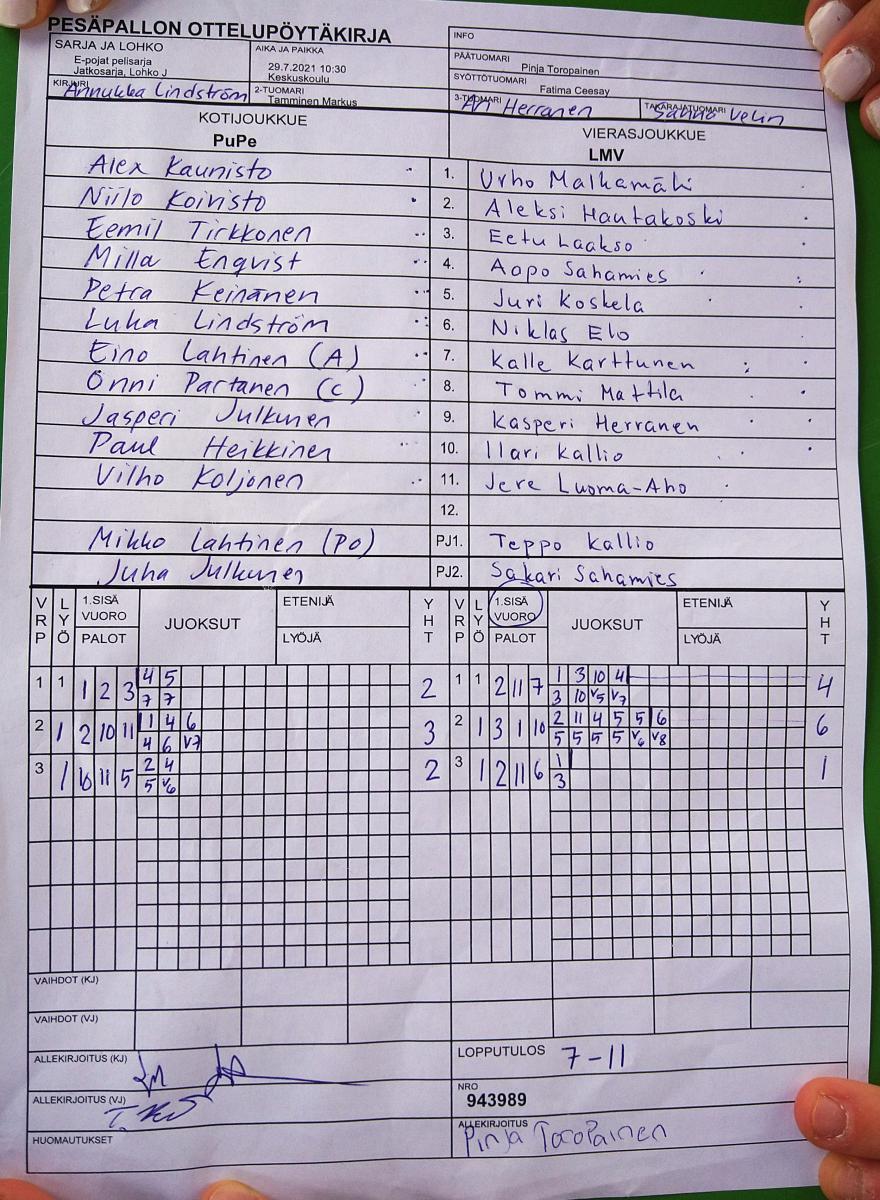 PESÄPALLON OTTELUPÖYTÄKIRJA
SARJA JA LOHKO
E-pojat pelisarja
Jatkosarja, Lohko J
AIKA JA PAIKKA
29.7.2021 10:30
Keskuskoulu
INFO
PÄÄTUOMARI
Pinja Toropainen
SYÖTTÖTUOMARI
Fatima Ceesay
KIRJURI
Annukka Lindström
2-TUOMARI
Tamminen Markus
3-TUOMARI
Ari Herranen
TAKARAJATUOMARI
Velin
KOTIJOUKKUE
PuPe
VIERASJOUKKUE
LMV
Alex Kaunisto 1. Urho Malkamäki
Niilo Koivisto 2. Aleksi Hautakoski
Eemil Tirkkonen 3. Eetu Laakso
Milla Enqvist 4. Aapo Sahamies
Petra Keinänen 5. Juri Koskela
Luka Lindström 6. Niklas Elo
Eino Lahtinen (A) 7. Kalle Karttunen
Onni Partanen (C) 8. Tommi Mattila
Jasperi Julkunen 9. Kasperi Herranen
Paul Heikkinen 10. Ilari Kallio
Vilho Koljonen 11. Jere Luoma-Aho
12.
Mikko Lahtinen (PO) PJ1. Teppo Kallio
Juha Julkunen PJ2. Sakari Sahamies
VRP LYÖ 1.SISÄ VUORO PALOT JUOKSUT ETENIJÄ LYÖJÄ YHT VRP LYÖ 1.SISÄ VUORO PALOT JUOKSUT ETENIJÄ LYÖJÄ YHT
1 1 1 2 3 4 5 2 1 1 2 11 7 1 3 10 4 4
7 7 3 10 V5 V7
2 1 2 10 11 1 4 6 3 2 1 3 1 10 2 11 4 5 5 6 6
4 6 V7 5 5 5 5 V6 V8
3 1 11 5 2 4 2 3 1 2 11 6 1 1
5 V6 3
VAIHDOT (KJ)
VAIHDOT (VJ)
ALLEKIRJOITUS (KJ)
LOPPUTULOS 7-11
ALLEKIRJOITUS (VJ)
NRO
943989
HUOMAUTUKSET
ALLEKIRJOITUS
Pinja Toropainen